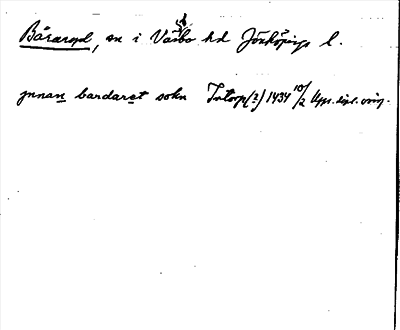 Båraryd, sn i Västbo hd Jönköpings l.
jnnan bardaret sokn Fatorp(?) 1434 10/2 Upps. dipl. orig.